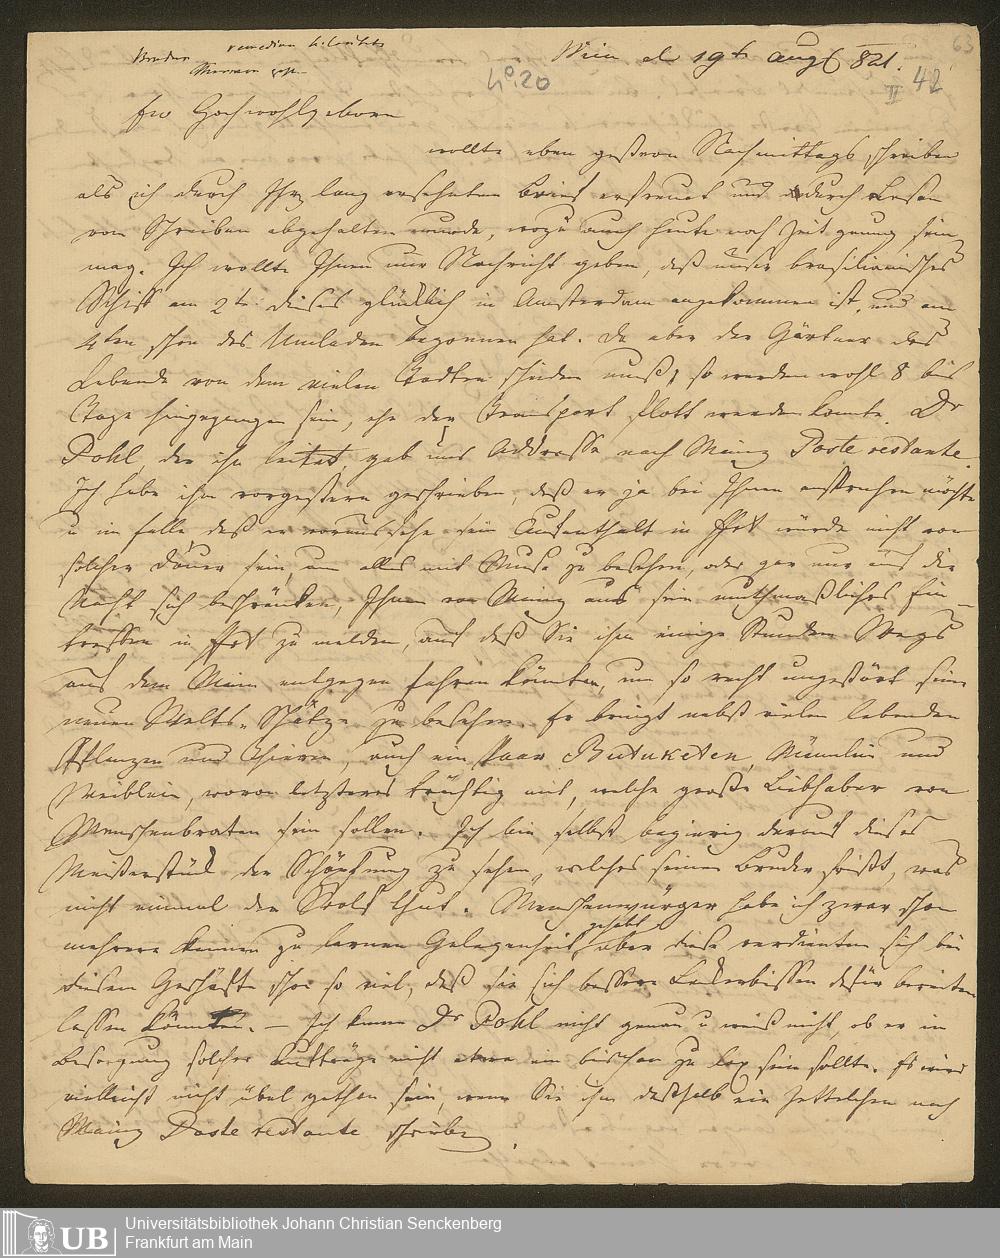 Wien d 19t. Augst 821.
63
No. 20
II 42
Ew Hochwohlgeboren
wollte eben gestern Nachmittags schreiben
als ich durch Ihr lang ersehnten Brief erfreut und durch Lesen
vom Schreiben abgehalten wurde, wozu auch heute noch Zeit genug sein
mag. Ich wollte Ihnen nur Nachricht geben, daß unser brasilianisches
Schiff am 2t. dieses glücklich in Amsterdam angekommen ist, und am
4ten schon das Umladen begonnen hat. Da aber der Gärtner das
Lebende von dem vielen Todten scheiden muß, so werden wohl 8 bis
Tage hingegangen sein, ehe der Transport flott werden konnte. Dr
Pohl, der ihn leitet, gab uns Addresse nach Mainz Poste restante.
Ich habe ihm vorgestern geschrieben, daß er ja bei Ihnen ansprechen möchte
u im falle, daß er voraussehe sein Aufenthalt in Ffrt würde nicht von
solcher Dauer sein, um alles mit Muse zu besehen, oder gar nur auf die
Nacht sich beschränken, Ihnen von Mainz aus sein muthmaßliches Ein-
treffen in Ffrt zu melden, auf daß Sie ihm einige Stunden Wegs
auf dem Main entgegen fahren könnten, um so recht ungestört seine
neuen Welts-Schätze zu besehen. Er bringt nebst vielen lebenden
Pflanzen und Thieren, auch ein Paar Butuketen, Männlein und
Weiblein, wovon letzteres trächtig ist, welche große Liebhaber von
Menschenbraten sein sollen. Ich bin selbst begierig darauf dieses
Meisterstück der Schöpfung zu sehen, welches seinen Bruder frißt, was
nicht einmal der Wolf thut. Menschenwürger habe ich zwar schon
mehrere kennen zu lernen Gelegenheit gehabt, aber diese verdienten sich bei
diesem Geschäfte schon so viel, daß sie sich bessere Leckerbissen dafür bereiten
lassen könnten. — Ich kenne Dr Pohl nicht genau u weiß nicht, ob er in
Besorgung solcher Aufträge nicht etwa ein bischen zu lax sein sollte. Es wird
vielleicht nicht übel gethan sein, wenn Sie ihm deßhalb ein Zettelchen nach
Mainz Poste restante schrieben.
UB
Universitätsbibliothek Johann Christian Senckenberg
Frankfurt am Main